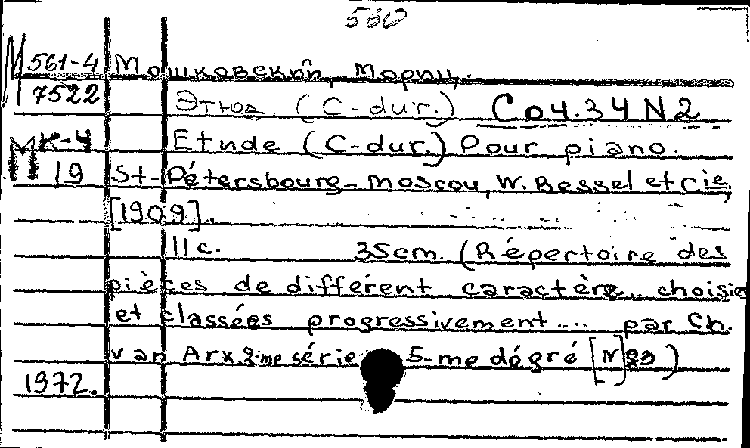 550
М 561-4 Мошковский, Мориц.
7522 Этюд (C-dur.) Соч.34 N2
МК-4 Etude (C-dur.) Pour piano.
19 St-Pétersbourg-Moscou, W. Bessel et Cie,
[1909].
11 с. 35 cm. (Répertoire des
pièces de différent caractère choisie
et classées progressivement... par Ch.
van Arx 2-me série 5-me dégré [N]
1972.